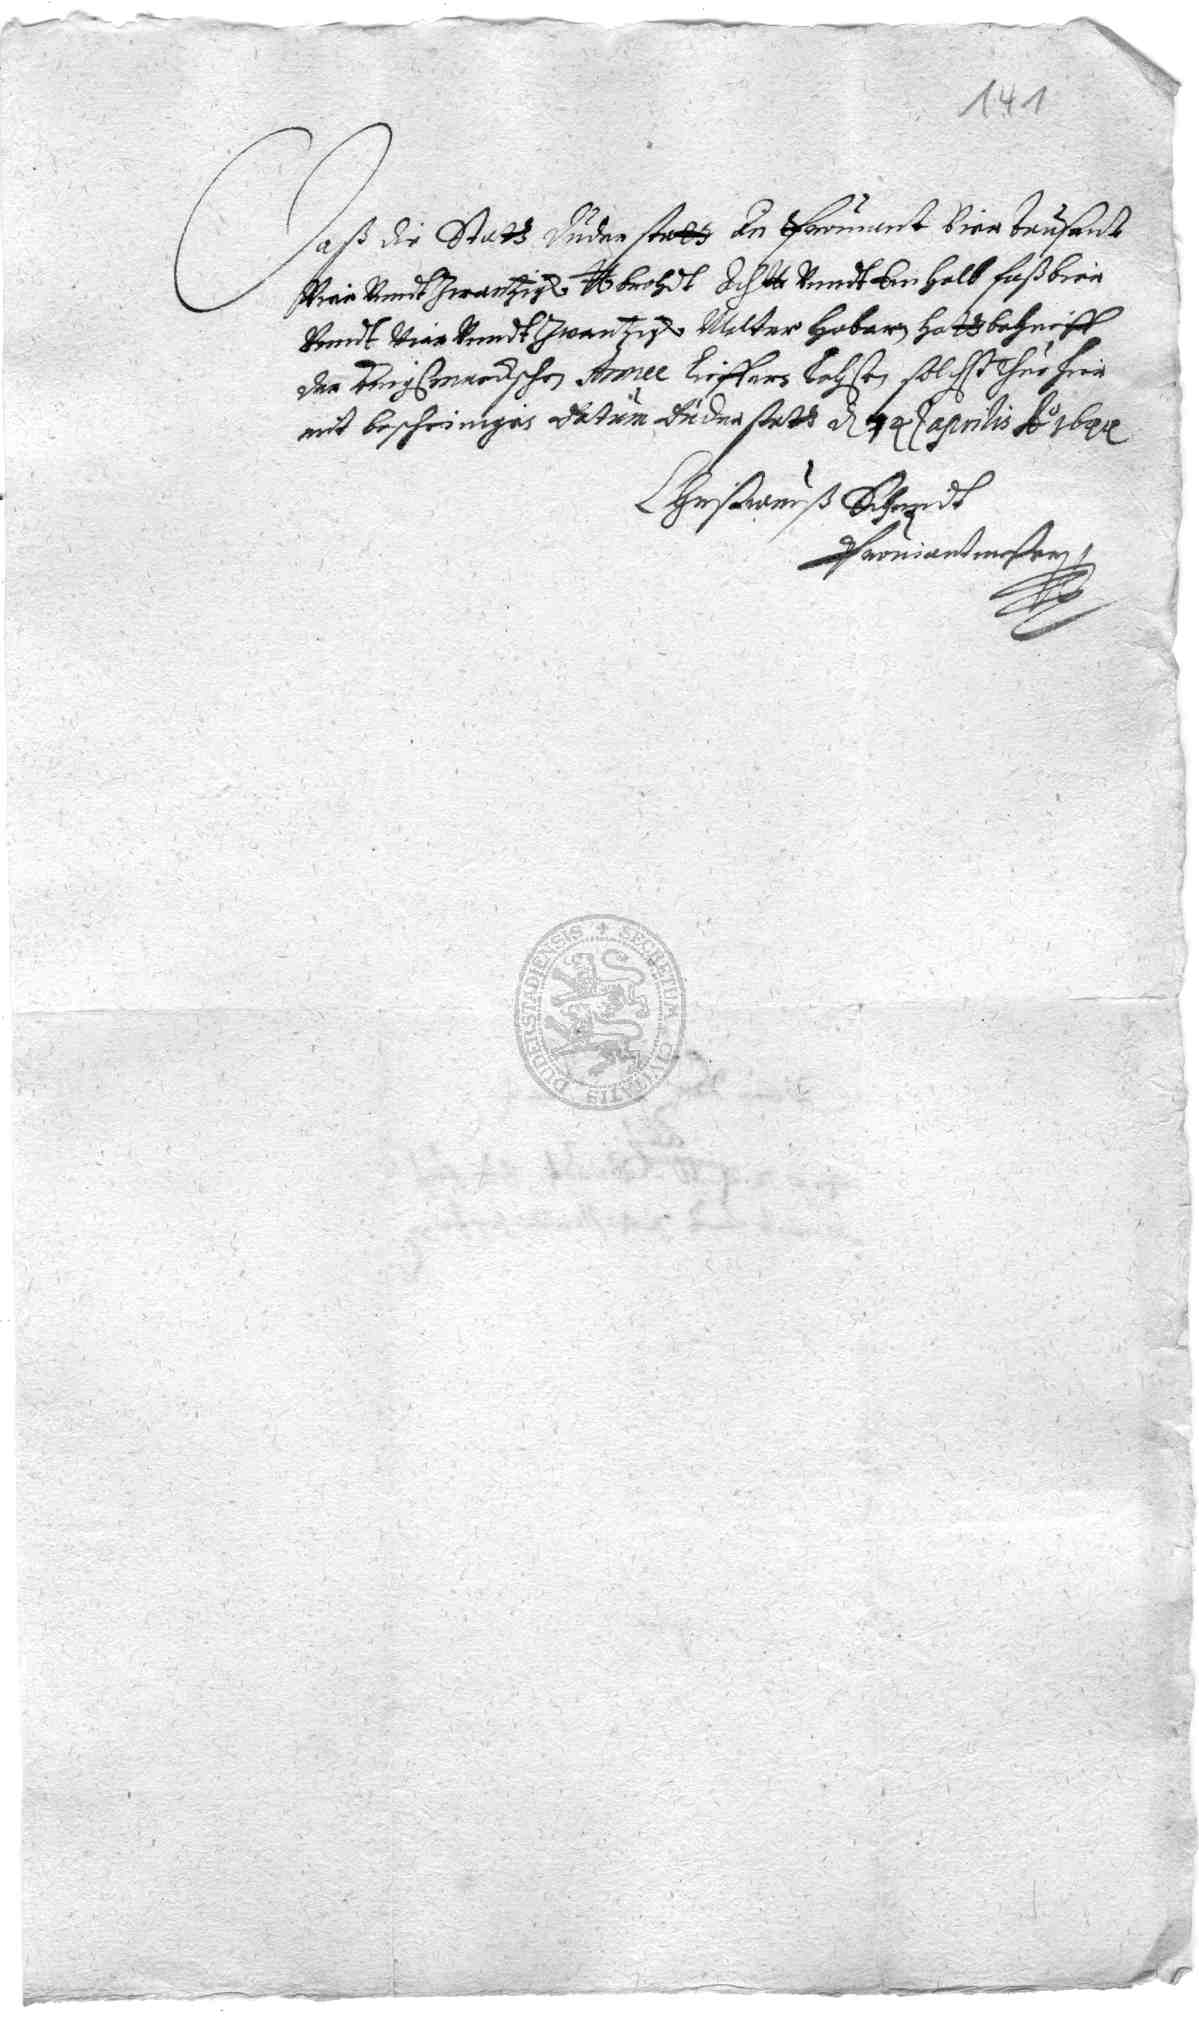 141
Daß die Statt Duderstatt An Proviant Vier tausent
Vier Undt Zwantzig ℔ brohdt Acht Undt Ein halb faß bier
Undt Vier Undt Zwantzig Malter Haber hatt behueff
der Königsmarckschen Armee lieffern laßen solches Thue hier
mit bescheinigen datum Duderstatt d 14 aprilis Ao 1644
Schmidt
Proviantmeister
SECRETUM CIVITATIS DUDERSTADIENSIS